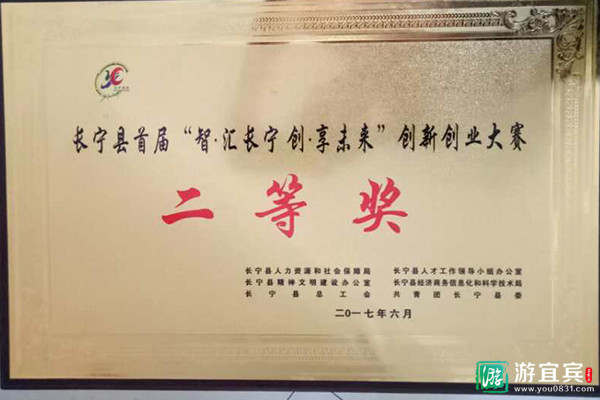 长宁县首届“智·汇长宁 创·享未来”创新创业大赛
二等奖
长宁县人力资源和社会保障局 长宁县人才工作领导小组办公室
长宁县精神文明建设办公室 长宁县经济商务信息化和科学技术局
长宁县总工会 共青团长宁县委
二〇一七年六月
游 游宜宾
www.you0831.com